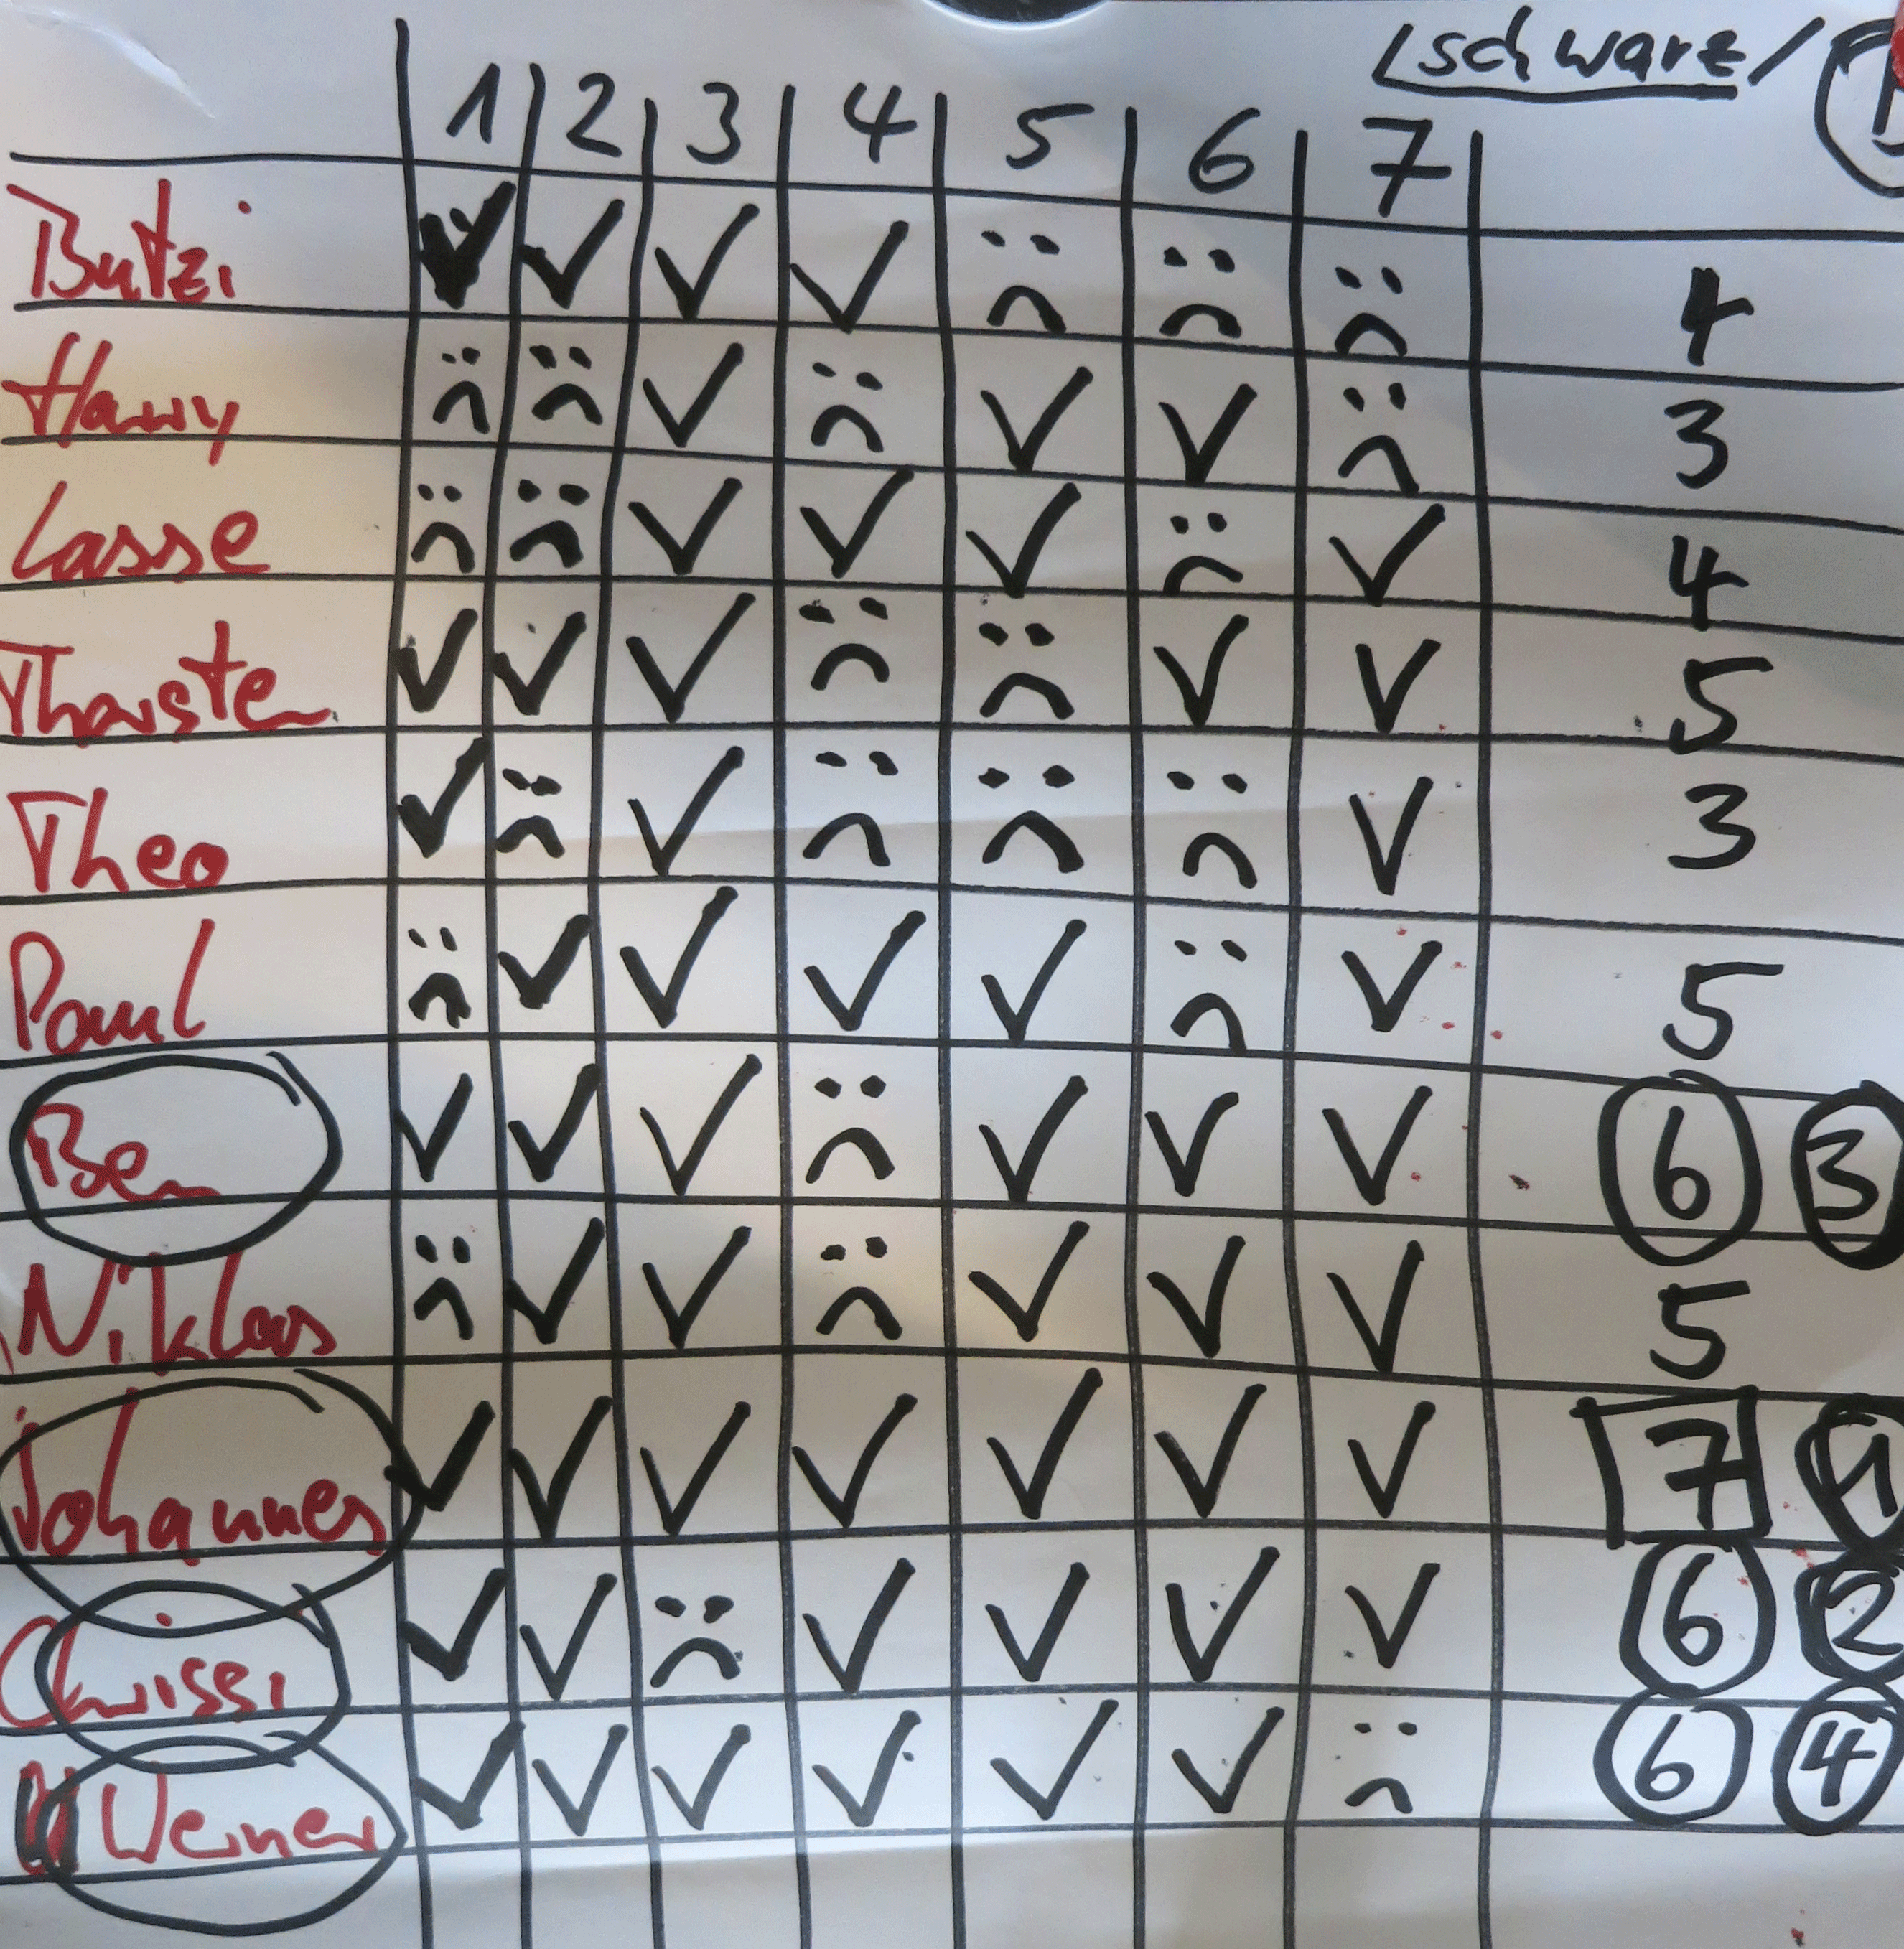 schwarz/
1 2 3 4 5 6 7
Butzi ✓ ✓ ✓ ✓ ☹ ☹ ☹ 4
Harry ☹ ☹ ✓ ☹ ✓ ✓ ☹ 3
Lasse ☹ ☹ ✓ ✓ ✓ ☹ ✓ 4
Thorsten ✓ ✓ ✓ ☹ ☹ ✓ ✓ 5
Theo ✓ ☹ ✓ ☹ ☹ ☹ ✓ 3
Paul ☹ ✓ ✓ ✓ ✓ ☹ ✓ 5
Ben ✓ ✓ ✓ ☹ ✓ ✓ ✓ 6 3
Niklas ☹ ✓ ✓ ☹ ✓ ✓ ✓ 5
Johannes ✓ ✓ ✓ ✓ ✓ ✓ ✓ 7 1
Chrissi ✓ ✓ ☹ ✓ ✓ ✓ ✓ 6 2
Werner ✓ ✓ ✓ ✓ ✓ ✓ ☹ 6 4